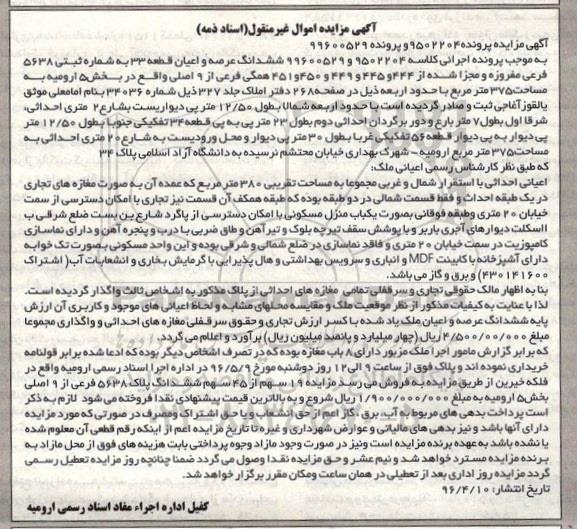 آگهی مزایده اموال غیرمنقول(اسناد ذمه)
آگهی مزایده پرونده۹۵۰۲۲۰۴ و پرونده ۹۹۶۰۰۵۲۹
به موجب پرونده اجرائی کلاسه ۹۵۰۲۲۰۴ و ۹۹۶۰۰۵۲۹ ششدانگ عرصه و اعیان قطعه ۳۳ به شماره ثبتی ۵۶۳۸
فرعی مفروزه و مجزا شده از ۴۴۴و ۴۴۵ و ۴۴۹ و ۴۵۰و ۴۵۱ همگی فرعی از ۹ اصلی واقع در بخش۵ ارومیه به
مساحت۳۷۵ متر مربع با حدود اربعه ذیل در صفحه۲۶۸ دفتر املاک جلد ۳۲۷ ذیل شماره ۳۴۰۳۶ بنام امامعلی موثق
یالقوز آغاجی ثبت و صادر گردیده است با حدود اربعه شمالا بطول ۱۲/۵۰ متر پی دیواریست بشارع ۲ متری احداثی،
شرقا اول بطول۷ متر بارع و دور برگردان احداثی دوم بطول ۲۳ متر پی به پی قطعه۳۴ تفکیکی جنوبا بطول ۱۲/۵۰ متر
پی دیوار به پی دیوار قطعه۵۶ تفکیکی غربا بطول ۳۰ متر پی دیوار و محل ورودیست به شارع ۲۰ متری احداثی به
مساحت۳۷۵ متر مربع ارومیه - شهرک بهداری خیابان محتشم نرسیده به دانشگاه آزاد اسلامی پلاک ۳۴
که طبق نظر کارشناس رسمی اعیانی ملک:
اعیانی احداثی با استقرار شمال و غربی مجموعا به مساحت تقریبی ۳۸۰ متر مربع که عمده آن به صورت مغازه های تجاری
در یک طبقه احداث و فقط قسمت شمالی در دو طبقه بوده که طبقه همکف آن قسمت نیز تجاری با امکان دسترسی از سمت
خیابان ۲۰ متری وطبقه فوقانی بصورت یکباب منزل مسکونی با امکان دسترسی از پاگرد شارع بن بست ضلع شرقی ب
ااسکلت دیوارهای آجری باربر و با پوشش سقف تیرچه بلوک و تیرآهن و طاق ضربی با درب و پنجره آهن و دارای نماسازی
کامپوزیت در سمت خیابان ۲۰ متری و فاقد نماسازی در ضلع شمالی و شرقی بوده و این واحد مسکونی بصورت تک خوابه
دارای آشپزخانه با کابینت MDF و انباری و سرویس بهداشتی و هال پذیرایی با گرمایش بخاری و انشعابات آب( اشتراک
۴۳۰۱۴۱۶۰۰) و برق و گاز می باشد.
بنا به اظهار مالک حقوق تجاری و سرقفلی تمامی مغازه های احداثی از پلاک مذکور به اشخاص ثالث واگذار گردیده است.
لذا با عنایت به کیفیات مذکور از نظر موقعیت ملک و مقایسه محلهای مشابه و لحاظ اعیانی های موجود و کاربری آن ارزش
پایه ششدانگ عرصه و اعیان ملک یاد شده با کسر ارزش تجاری و حقوق سرقفلی مغازه های احداثی و واگذاری مجموعا
مبلغ ۴/۵۰۰/۰۰/۰۰۰ ریال (چهار میلیارد و پانصد میلیون ریال) برآورد و اعلام می گردد.
که برابر گزارش مامور اجرا ملک مزبور دارای ۸ باب مغازه بوده که در تصرف اشخاص دیگر بوده که ادعا شده برابر قولنامه
خریداری نموده اند و پلاک فوق از ساعت ۹ الی ۱۲ روز دوشنبه مورخ ۹۶/۵/۹ در اداره اجرا اسناد رسمی ارومیه واقع در
فلکه خیرین از طریق مزایده به فروش می رسد مزایده ۱۹ سهم از ۴۵ سهم ششدانگ پلاک ۵۶۳۸ فرعی از ۹ اصلی
بخش ۵ ارومیه به مبلغ ۱/۹۰۰/۰۰۰/۰۰۰ ریال شروع و به بالاترین قیمت پیشنهادی نقدا فروخته می شود لازم به ذکر
است پرداخت بدهی های مربوط به آب، برق، گاز اعم از حق انشعاب و یا حق اشتراک و مصرف در صورتی که مورد مزایده
دارای آنها باشد و نیز بدهی های مالیاتی و عوارض شهرداری و غیره تا تاریخ مزایده اعم از اینکه رقم قطعی آن معلوم شده
یا نشده باشد به عهده برنده مزایده است ونیز در صورت وجود مازاد وجوه پرداختی بابت هزینه های فوق از محل مازاد به
برنده مزایده مسترد خواهد شد و نیم عشر و حق مزایده نقدا وصول می گردد ضمنا چنانچه روز مزایده تعطیل رسمی
گردد مزایده روز اداری بعد از تعطیلی در همان ساعت ومکان مقرر برگزار خواهد شد.
تاریخ انتشار: ۹۶/۴/۱۰
کفیل اداره اجراء مفاد اسناد رسمی ارومیه